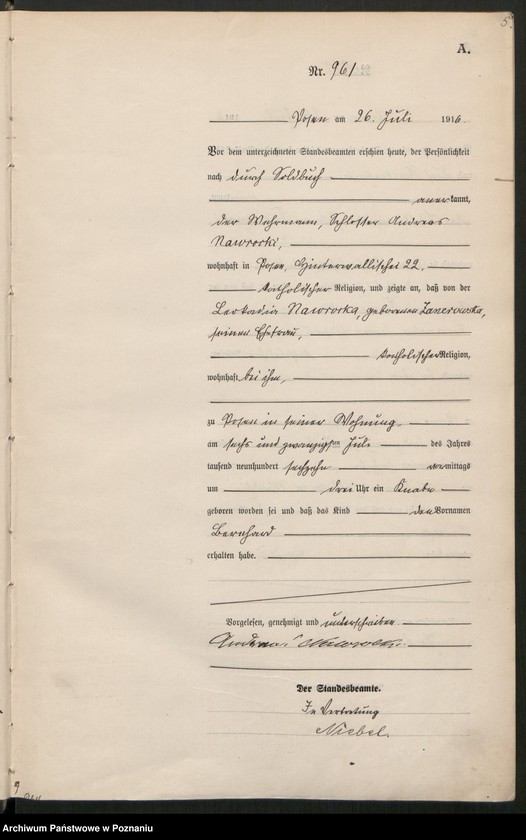 5.
A.
Nr. 961
Posen am 26. Juli 1916.
Vor dem unterzeichneten Standesbeamten erschien heute, der Persönlichkeit
nach durch Soldbuch
anerkannt,
der Wehrmann, Schlosser Andreas
Nawrocki,
wohnhaft in Posen, Hinterwallischei 22,
katholischer Religion, und zeigte an, daß von der
Leokadia Nawrocka, geborenen
seiner Ehefrau,
katholischer Religion,
wohnhaft bei ihm,
zu Posen in seiner Wohnung
am sechs und zwanzigsten Juli des Jahres
tausend neunhundert sechzehn mittags
um drei Uhr ein Knabe
geboren worden sei und daß das Kind den Vornamen
Bernhard
erhalten habe.
Vorgelesen, genehmigt und unterschrieben
Andreas Nawrocki
Der Standesbeamte.
In Vertretung
Niebel.
Archiwum Państwowe w Poznaniu